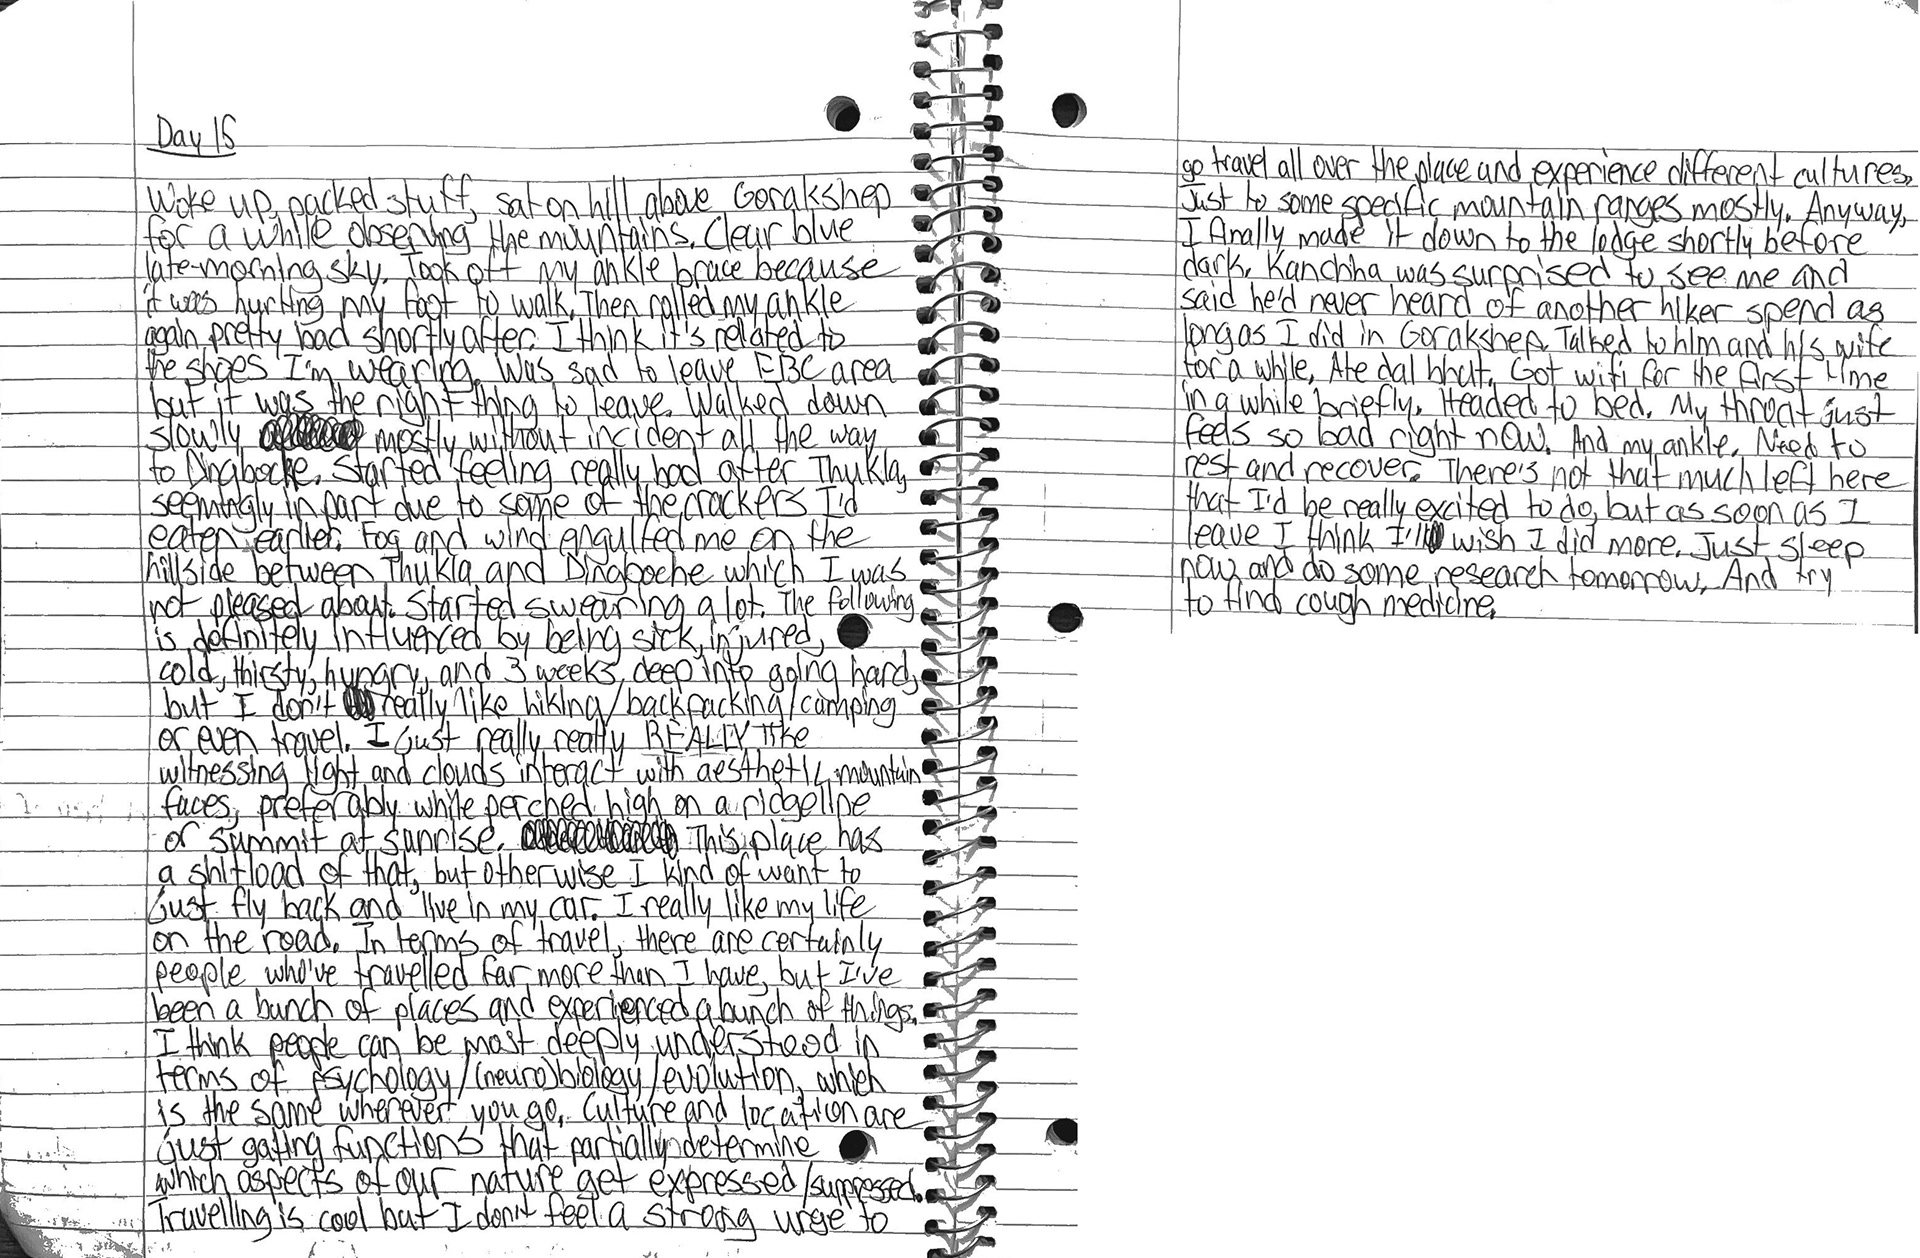 Day 15
Woke up, packed stuff, sat on hill above Gorakshep
for a while observing the mountains. Clear blue
late-morning sky. Took off my ankle brace because
it was hurting my foot to walk. Then rolled my ankle
again pretty bad shortly after. I think it's related to
the shoes I'm wearing. Was sad to leave EBC area
but it was the right thing to leave. Walked down
slowly mostly without incident all the way
to Dingboche. Started feeling really bad after Thukla,
seemingly in part due to some of the crackers I'd
eaten earlier. Fog and wind engulfed me on the
hillside between Thukla and Dingboche which I was
not pleased about. Started swearing a lot. The following
is definitely influenced by being sick, injured,
cold, thirsty, hungry, and 3 weeks deep into going hard,
but I don't really like hiking/backpacking/camping
or even travel. I just really really REALLY like
witnessing light and clouds interact with aesthetic mountain
faces, preferably while perched high on a ridgeline
or summit at sunrise. This place has
a shitload of that, but otherwise I kind of want to
just fly back and live in my car. I really like my life
on the road. In terms of travel, there are certainly
people who've travelled far more than I have, but I've
been a bunch of places and experienced a bunch of things.
I think people can be most deeply understood in
terms of psychology/(neuro)biology/evolution, which
is the same wherever you go. Culture and location are
just gating functions that partially determine
which aspects of our nature get expressed/suppressed.
Travelling is cool but I don't feel a strong urge to
go travel all over the place and experience different cultures.
Just to some specific mountain ranges mostly. Anyway,
I finally made it down to the lodge shortly before
dark. Kanchha was surprised to see me and
said he'd never heard of another hiker spend as
long as I did in Gorakshep. Talked to him and his wife
for a while. Ate dal bhat. Got wifi for the first time
in a while briefly. Headed to bed. My throat just
feels so bad right now. And my ankle. Need to
rest and recover. There's not that much left here
that I'd be really excited to do, but as soon as I
leave I think I'll wish I did more. Just sleep
now and do some research tomorrow. And try
to find cough medicine.